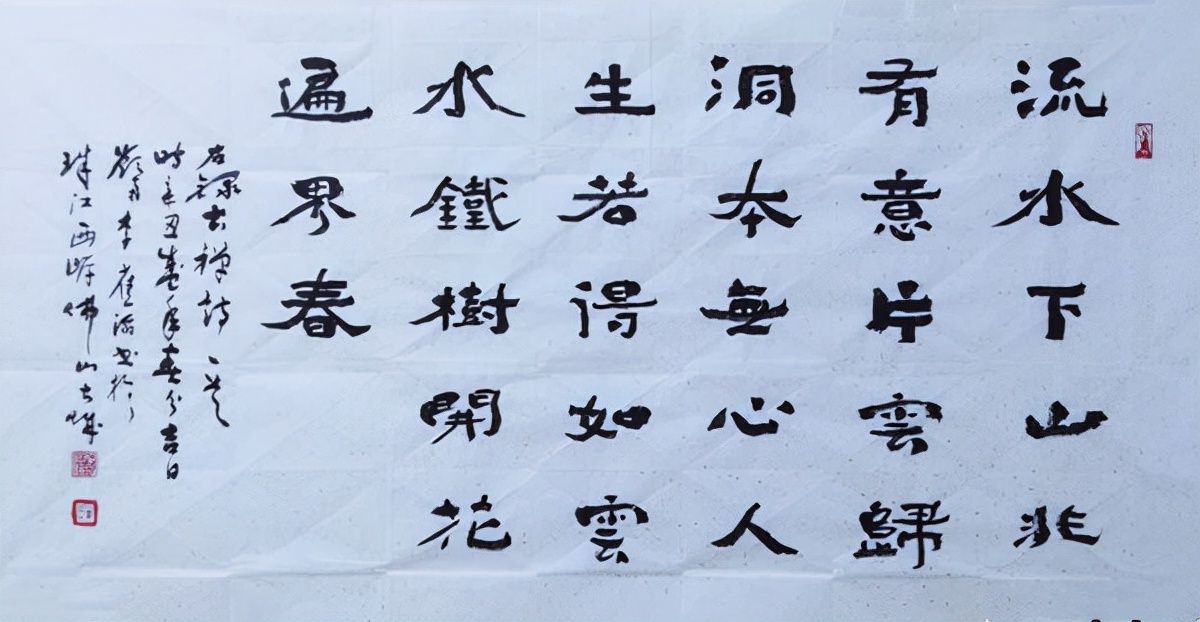 流水下山非
有意片雲歸
洞本無心人
生若得如雲
水鐵樹開花
遍界春
右錄古禪詩一首
時辛丑年春分吉日
嶺南李崔滔書於
珠江西岸佛山古城